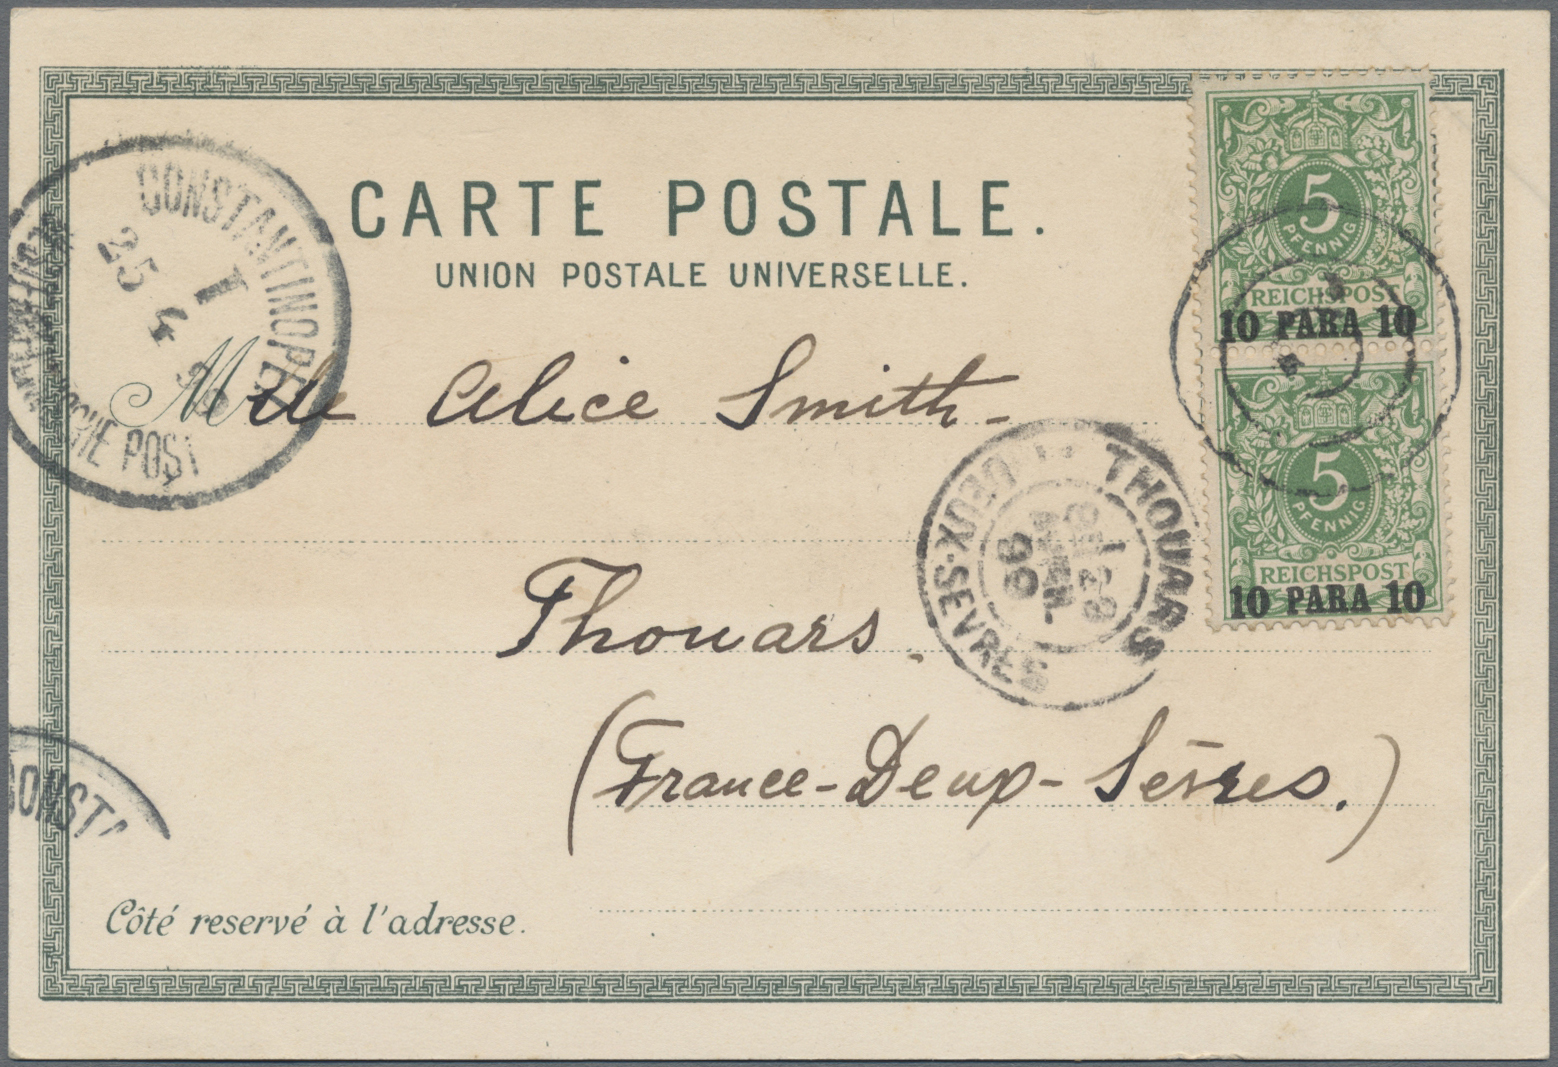 CARTE POSTALE.
UNION POSTALE UNIVERSELLE.
Mlle Alice Smith
Thouars.
(France-Deux-Sèvres.)
Côté reservé à l'adresse.
5
PFENNIG
REICHSPOST
10 PARA 10
5
PFENNIG
REICHSPOST
10 PARA 10
CONSTANTINOPEL
I
25
4
POST
THOUARS
28
99
DEUX-SEVRES
CONSTA